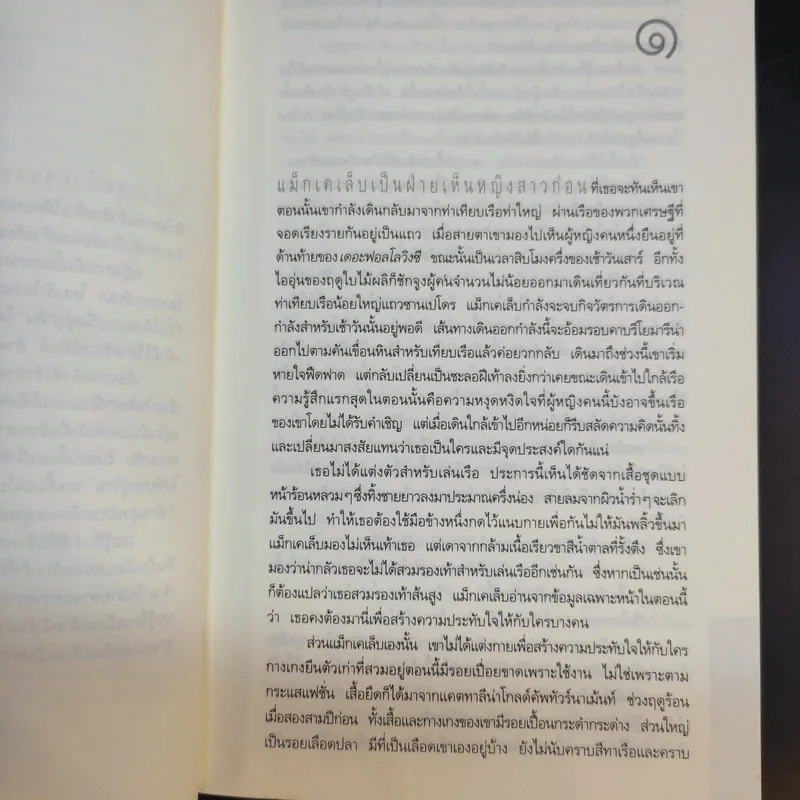 ๑
แม็กเคเล็บเป็นฝ่ายเห็นหญิงสาวก่อน ที่เธอจะทันเห็นเขา
ตอนนั้นเขากำลังเดินกลับมาจากท่าเทียบเรือท่าใหญ่ ผ่านเรือของพวกเศรษฐีที่
จอดเรียงรายกันอยู่เป็นแถว เมื่อสายตาเขามองไปเห็นผู้หญิงคนหนึ่งยืนอยู่ที่
ด้านท้ายของเดอะฟอลโลวิงซี ขณะนั้นเป็นเวลาสิบโมงครึ่งของเช้าวันเสาร์ อีกทั้ง
ไออุ่นของฤดูใบไม้ผลิก็ชักจูงผู้คนจำนวนไม่น้อยออกมาเดินเที่ยวกันที่บริเวณ
ท่าเทียบเรือน้อยใหญ่แถวซานเปโดร แม็กเคเล็บกำลังจะจบกิจวัตรการเดินออก-
กำลังสำหรับเช้าวันนั้นอยู่พอดี เส้นทางเดินออกกำลังนี้จะอ้อมรอบคาบรีโยมารีน่า
ออกไปตามคันเขื่อนหินสำหรับเทียบเรือแล้วค่อยวกกลับ เดินมาถึงช่วงนี้เขาเริ่ม
หายใจฟืดฟาด แต่กลับเปลี่ยนเป็นชะลอฝีเท้าลงยิ่งกว่าเคยขณะเดินเข้าไปใกล้เรือ
ความรู้สึกแรกสุดในตอนนั้นคือความหงุดหงิดใจที่ผู้หญิงคนนี้บังอาจขึ้นเรือ
ของเขาโดยไม่ได้รับคำเชิญ แต่เมื่อเดินใกล้เข้าไปอีกหน่อยก็รีบสลัดความคิดนั้นทิ้ง
และเปลี่ยนมาสงสัยแทนว่าเธอเป็นใครและมีจุดประสงค์ใดกันแน่
เธอไม่ได้แต่งตัวสำหรับเล่นเรือ ประการนี้เห็นได้ชัดจากเสื้อชุดแบบ
หน้าร้อนหลวมๆซึ่งทิ้งชายยาวลงมาประมาณครึ่งน่อง สายลมจากผิวน้ำร่ำๆจะเลิก
มันขึ้นไป ทำให้เธอต้องใช้มือข้างหนึ่งกดไว้แนบกายเพื่อกันไม่ให้มันพลิ้วขึ้นมา
แม็กเคเล็บมองไม่เห็นเท้าเธอ แต่เดาจากกล้ามเนื้อเรียวขาสีน้ำตาลที่รั้งตึง ซึ่งเขา
มองว่าน่ากลัวเธอจะไม่ได้สวมรองเท้าสำหรับเล่นเรืออีกเช่นกัน ซึ่งหากเป็นเช่นนั้น
ก็ต้องแปลว่าเธอสวมรองเท้าส้นสูง แม็กเคเล็บอ่านจากข้อมูลเฉพาะหน้าในตอนนี้
ว่า เธอคงต้องมานี่เพื่อสร้างความประทับใจให้กับใครบางคน
ส่วนแม็กเคเล็บเองนั้น เขาไม่ได้แต่งกายเพื่อสร้างความประทับใจให้กับใคร
กางเกงยีนตัวเก่าที่สวมอยู่ตอนนี้มีรอยเปื่อยขาดเพราะใช้งาน ไม่ใช่เพราะตาม
กระแสแฟชั่น เสื้อยืดก็ได้มาจากแคตทาลีน่าโกลด์คัพทัวร์นาเม้นท์ ช่วงฤดูร้อน
เมื่อสองสามปีก่อน ทั้งเสื้อและกางเกงของเขามีรอยเปื้อนกระดำกระด่าง ส่วนใหญ่
เป็นรอยเลือดปลา มีที่เป็นเลือดเขาเองอยู่บ้าง ยังไม่นับคราบสีทาเรือและคราบ